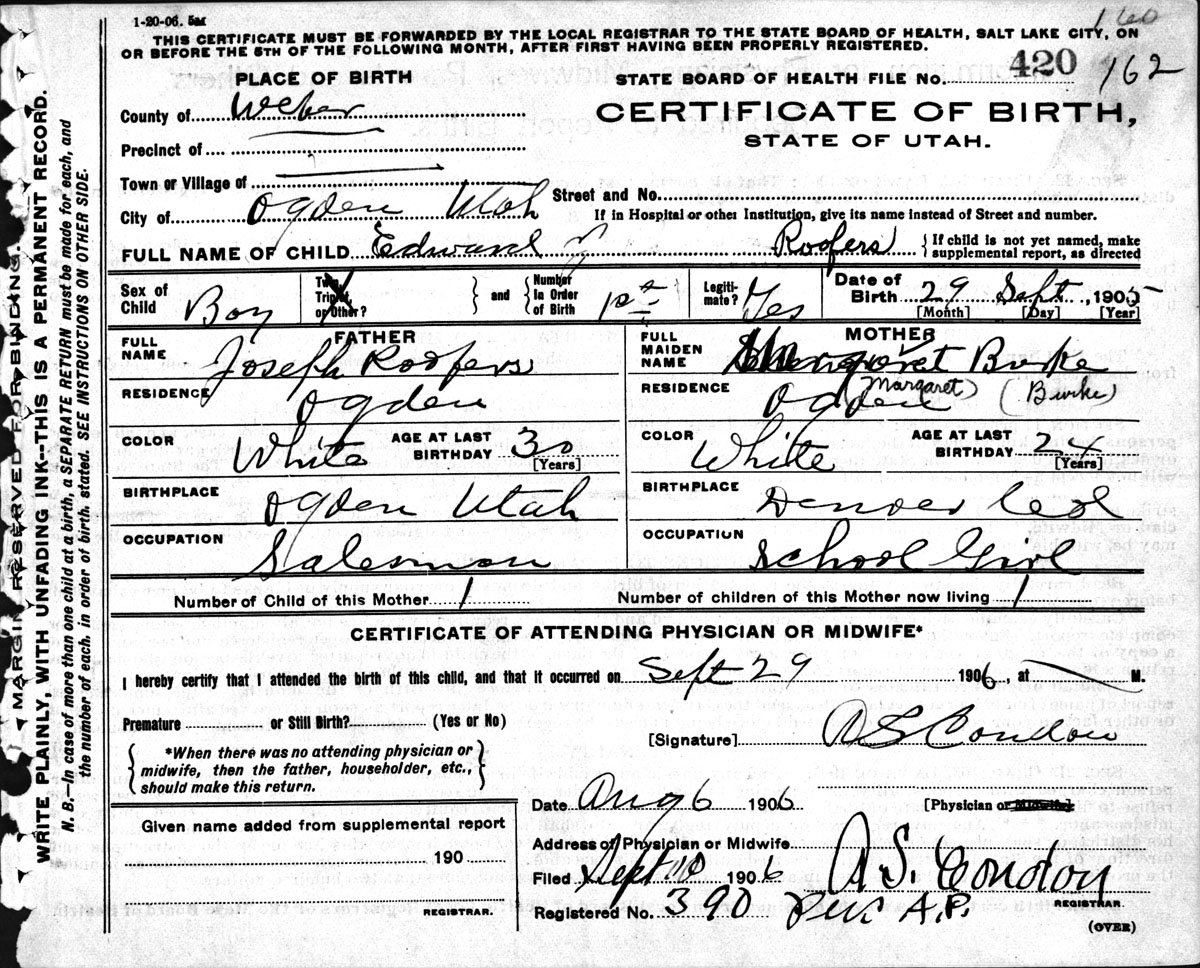 1-20-06. 5M
160
THIS CERTIFICATE MUST BE FORWARDED BY THE LOCAL REGISTRAR TO THE STATE BOARD OF HEALTH, SALT LAKE CITY, ON
OR BEFORE THE 5TH OF THE FOLLOWING MONTH, AFTER FIRST HAVING BEEN PROPERLY REGISTERED.
PLACE OF BIRTH
STATE BOARD OF HEALTH FILE No. 420 162
County of Weber
CERTIFICATE OF BIRTH,
STATE OF UTAH.
Precinct of
Town or Village of
Street and No.
City of Ogden Utah
If in Hospital or other Institution, give its name instead of Street and number.
FULL NAME OF CHILD Edward Roofers { If child is not yet named, make supplemental report, as directed
Sex of Child Boy
Twin, Triplet, or Other? } and { Number in Order of Birth 1st
Legiti-mate? Yes
Date of Birth 29 Sept, 1905
[Month] [Day] [Year]
FATHER
FULL NAME Joseph Roofers
RESIDENCE Ogden
COLOR White AGE AT LAST BIRTHDAY 30 [Years]
BIRTHPLACE Ogden Utah
OCCUPATION Salesman
MOTHER
FULL MAIDEN NAME Margaret Burke
(Margaret) (Burke)
RESIDENCE Ogden
COLOR White AGE AT LAST BIRTHDAY 24 [Years]
BIRTHPLACE Denver Col
OCCUPATION School Girl
Number of Child of this Mother 1 Number of children of this Mother now living 1
CERTIFICATE OF ATTENDING PHYSICIAN OR MIDWIFE*
I hereby certify that I attended the birth of this child, and that it occurred on Sept 29 1906, at M.
Premature or Still Birth? (Yes or No)
[Signature] A S Condon
{ *When there was no attending physician or
midwife, then the father, householder, etc.,
should make this return. }
Date Aug 6 1906 [Physician or Midwife]
Given name added from supplemental report
190
REGISTRAR.
Address of Physician or Midwife
Filed Sept 10 1906 A S Condon
REGISTRAR.
Registered No. 390 A.P.
(OVER)
MARGIN RESERVED FOR BINDING.
WRITE PLAINLY, WITH UNFADING INK--THIS IS A PERMANENT RECORD.
N. B.—In case of more than one child at a birth, a SEPARATE RETURN must be made for each, and
the number of each, in order of birth, stated. SEE INSTRUCTIONS ON OTHER SIDE.